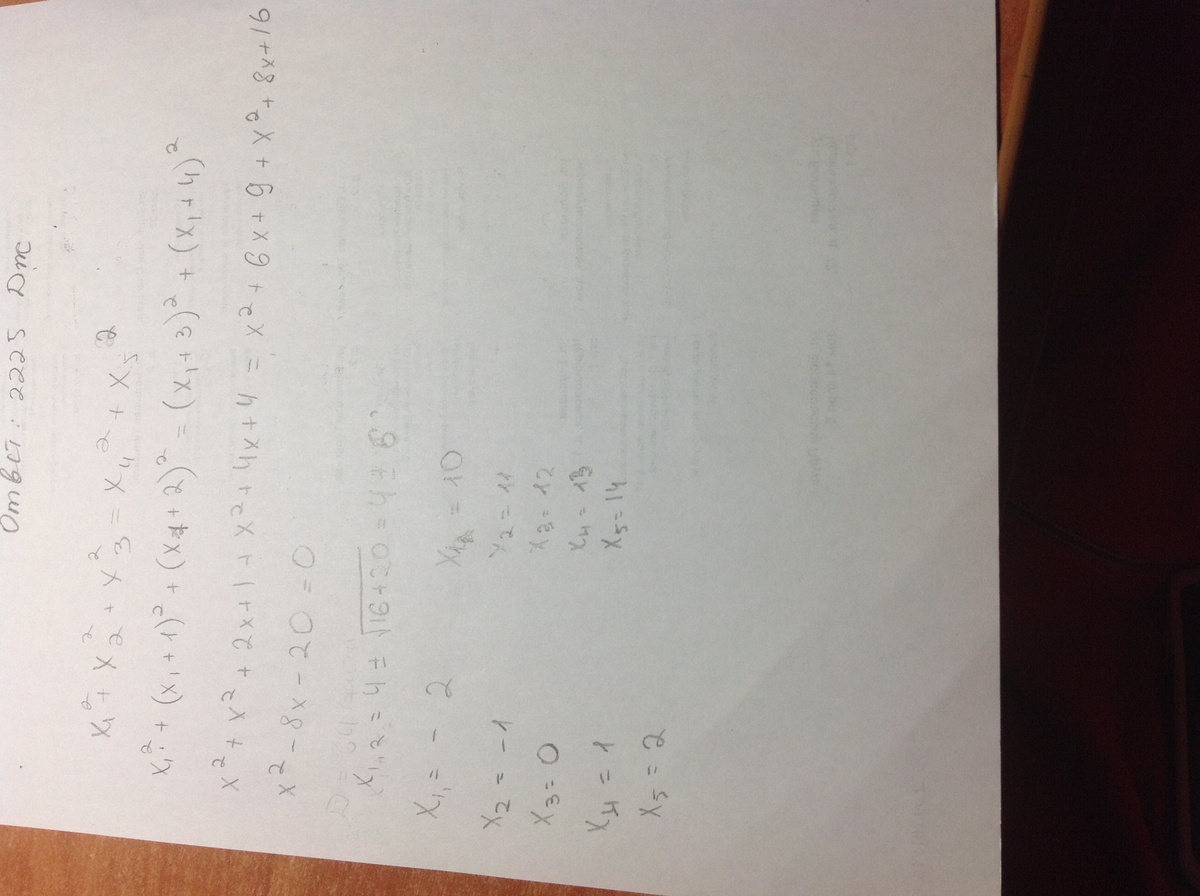 Ответ: 2225 Дж
x₁² + x₂² + x²₃ = x₄² + x₅²
x₁² + (x₁+1)² + (x₁+2)² = (x₁+3)² + (x₁+4)²
x² + x² + 2x+1 + x² + 4x+4 = x² + 6x+9 + x² + 8x+16
x² - 8x - 20 = 0
x₁,₂ = 4 ± √16+20 = 4 ± 6
x₁ = - 2 x₁ = 10
x₂ = -1 x₂ = 11
x₃ = 0 x₃ = 12
x₄ = 1 x₄ = 13
x₅ = 2 x₅ = 14